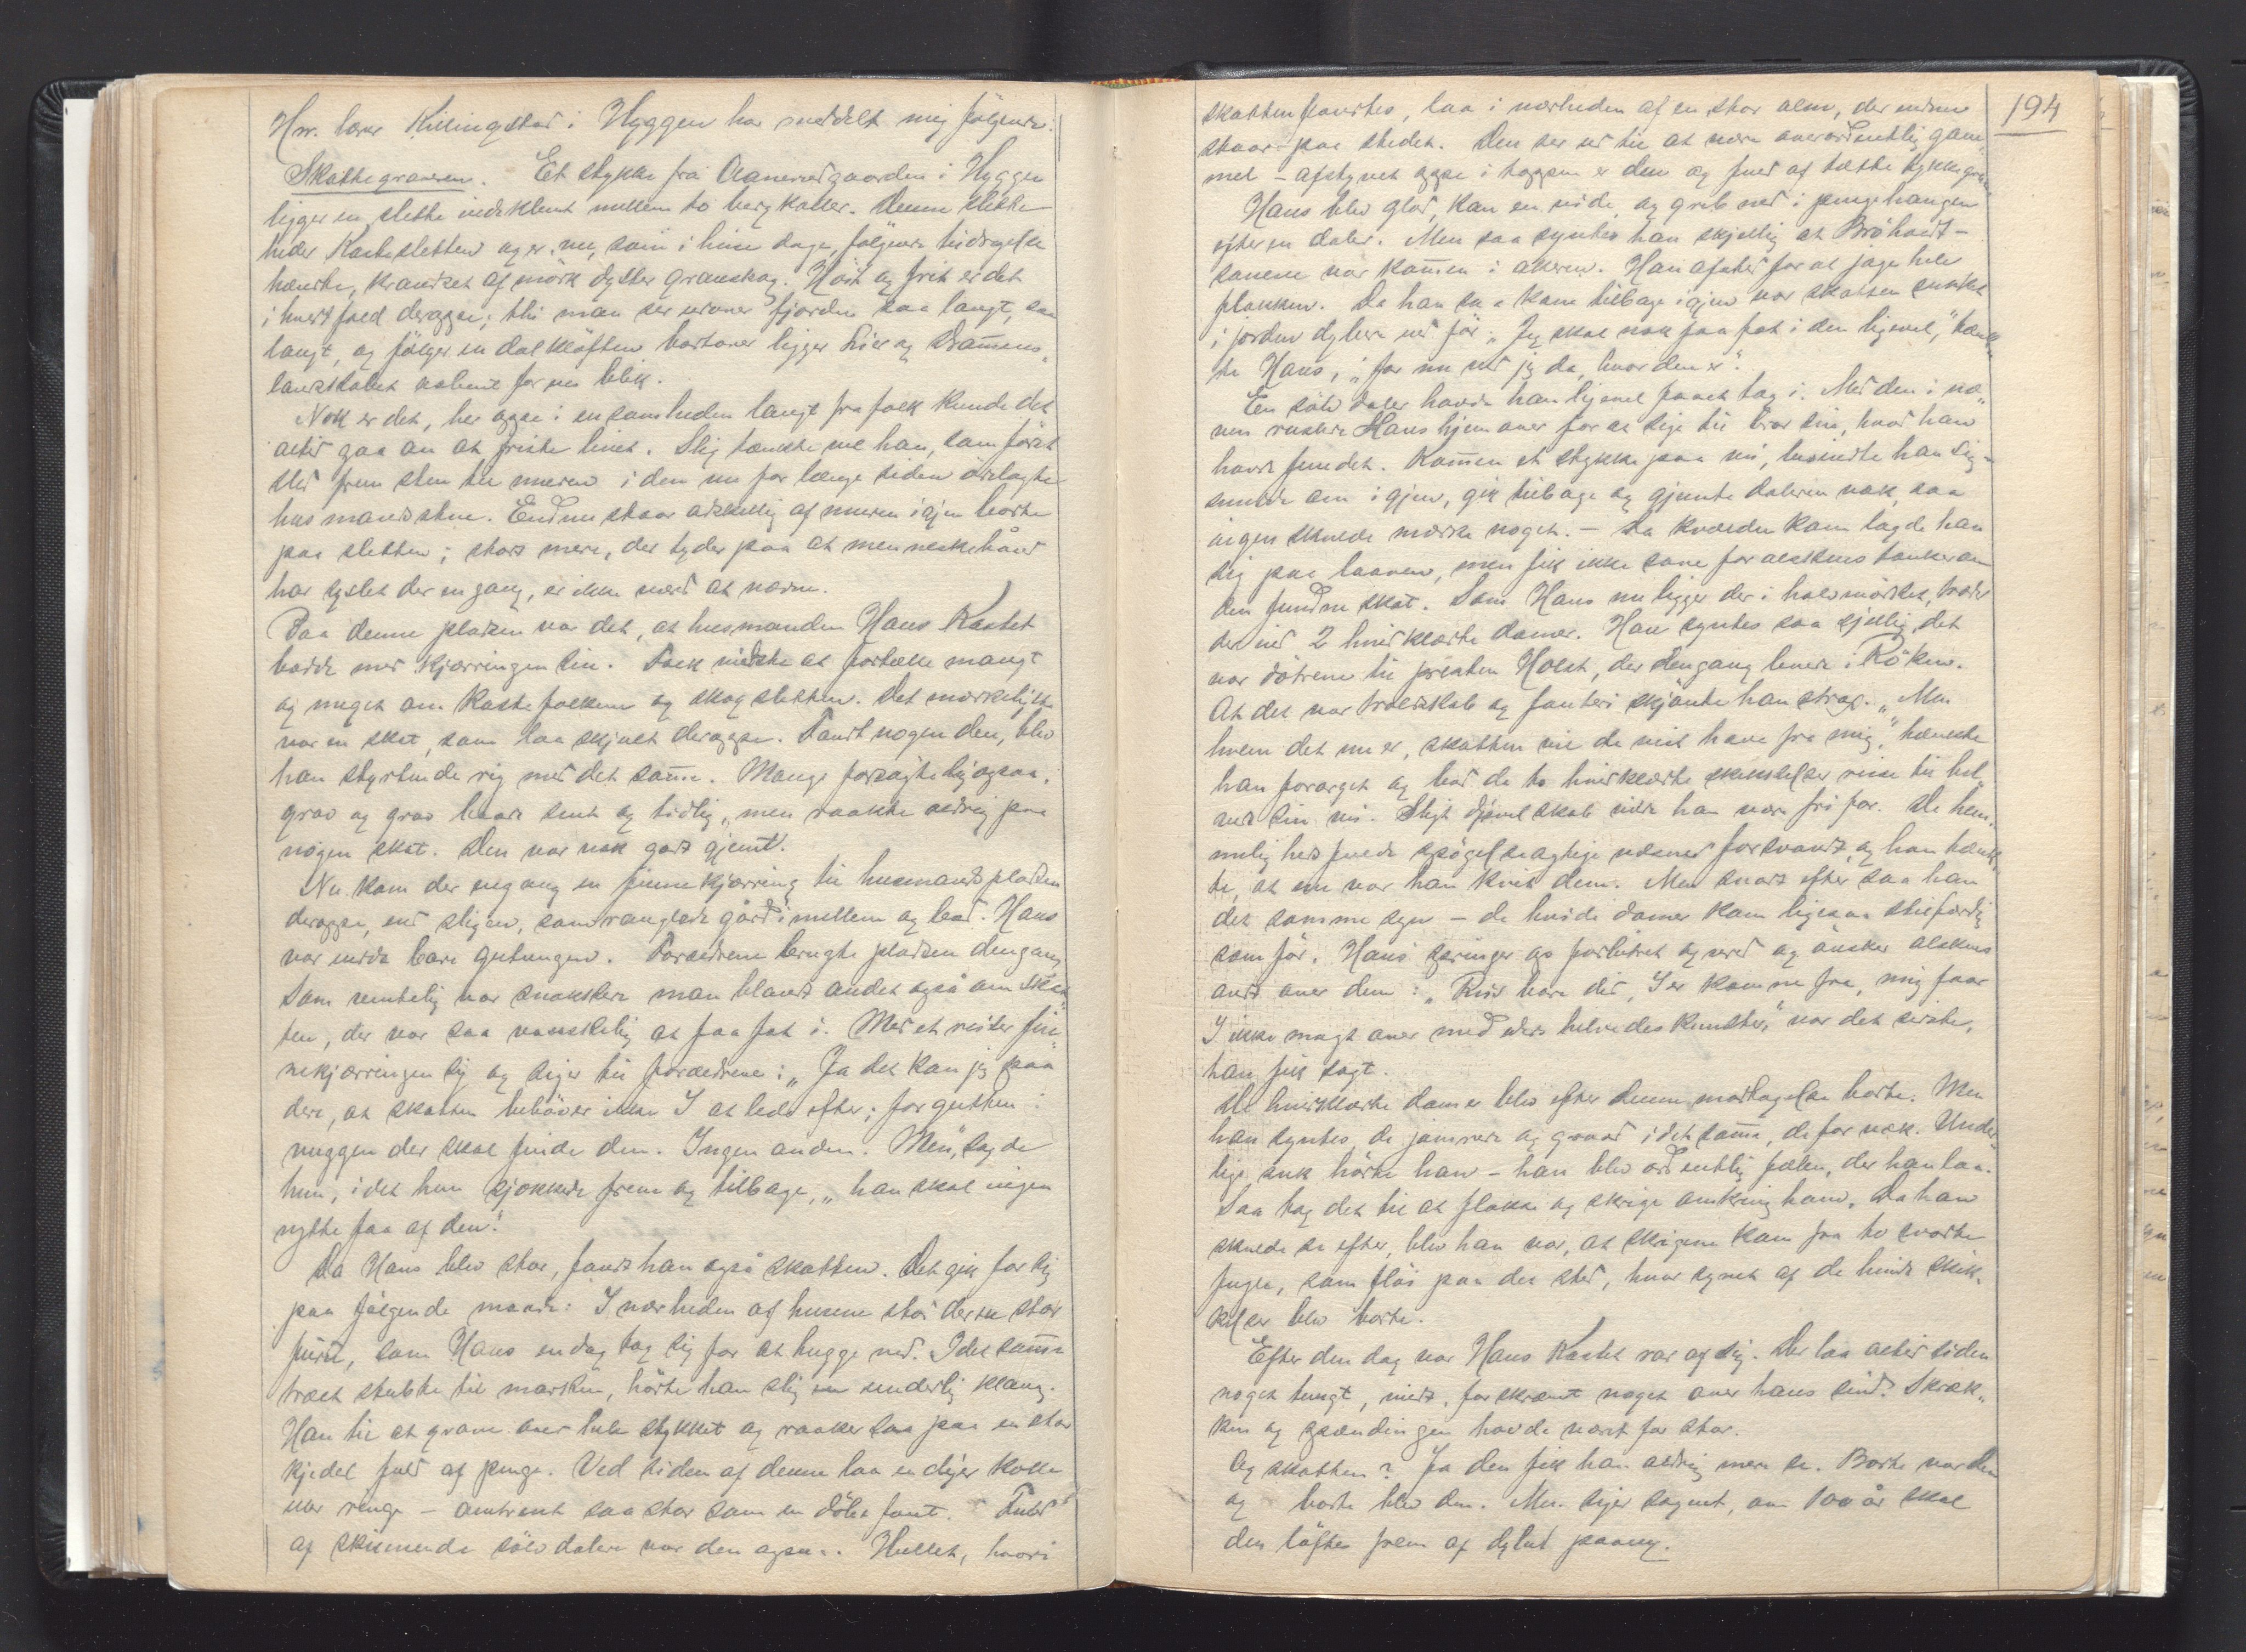 Hrr. lærer Killingstad i Hyggen har meddelt mig følgende:
Skattegraveren. Et stykke fra Aanerudgaarden i Hyggen
ligger en slette indeklemt mellem to bergkoller. Denne slette
heder Kastesletten og er nu, som i hine dage, følgende tildragelse
hændte, kranset af mørk dyster granskog. Høit og frit er det
i hvert fald deroppe; thi man ser udover fjorden saa langt, saa
langt, og følger en dalkløften bortover ligger Lier og Dramens„
landskabet aabent for ens blik.
Nok er det, her oppe i ensomheden langt fra folk kunde det
altid gaa an at friste livet. Slig tænkte vel han, som først
sled frem sten til muren i den nu for længe siden ødelagte
husmandsstue. Endnu staar adskillig af muren igjen borte
paa sletten; stort mere, der tyder paa at menneskehånd
har syslet der engang, er ikke værd at nævne.
Paa denne pladsen var det, at husmanden Hans Kastet
bodde med kjærringen sin. Folk vidste at fortælle mangt
og meget om Kastefolkene og skogsletten. Det mærkeligste
var en skat, som laa skjult deroppe. Fandt nogen den, blev
han styrtende rig med det same. Mange forsøgte sig ogsaa,
grov og grov baade sent og tidlig, men raakte aldrig paa
nogen skat. Den var nok godt gjemt.
Nu kom der engang en finnekjærring til husmandspladsen
deroppe, end sligen, som ranglede gård imellem og bad. Hans
var endda bare gutungen. Forældrene brugte pladsen dengang.
Som rimelig var snakkede man blandt andet også om skat„
ten, der var saa vanskelig at faa fat i. Med et reiser fin„
nekjærringen sig og siger til forældrene: „Ja det kan jeg spaa
dere, at skatten behøver ikke I at lede efter; for gutten i
vuggen der skal finde den. Ingen anden. Men", sagde
hun, idet hun sjokkede frem og tilbage, „han skal ingen
nytte faa af den".
Da Hans blev stor, fandt han også skatten. Det gik for sig
paa følgende maade: I nærheden af husene stod der en stor
furu, som Hans endag tog sig for at hugge ned. I det same
træet stupte til marken, hørte han slig en underlig klang.
Han til at grave over hele stykket og raaker saa paa en stor
kjedel fuld af penge. Ved siden af denne laa en diger kolle
uden ringe – omtrent saa stor som en døbefont. Fuld
af skinnende sølvdaler var den ogsaa. Hullet, hvori
194
skatten fandtes, laa i nærheden af en stor alm, der endnu
staar paa stedet. Den ser ud til at være overordentlig gam„
mel – afstynet oppe i toppen er den og fuld af tætte tykke grene.
Hans blev glad, kan en vide, og greb ned i pengehaugen
efter en daler. Men saa syntes han skjellig at Bråhaedt–
sauene var komen i akeren. Han afsted for at jage hele
flokken. Da han saa kom tilbage igjen var skatten sunket
i jorden dybere end før. „Jeg skal nok faa fat i den ligevel", tænk„
te Hans, „for nu ved jeg da, hvor den er".
En sølvdaler havde han ligevel faaet tag i. Med den i næ„
ven ruslede Hans hjemover for at sige til bror sin, hvad han
havde fundet. Komen et stykke paa vei, besindte han sig
imidlertid om igjen, gik tilbage og gjemte daleren nok, saa
ingen skulde mærke noget. – Da kvelden kom lagde han
sig paa laaven, men fik ikke sove for alskens tanker om
den fundne skat. Som Hans nu ligger der i halvmørket, træder
der ind 2 hvidklædte damer. Han syntes saa sjellig, det
var døtrene til presten Holst, der dengang levede i Røken.
At det var troldskab og fanteri skjønte han strax. „Men
hvem det nu er, skatten vil de vist have fra mig", tænkte
han forarget og bad de to hvidklædte skikkelser reise til hel„
vede sin vei. Sligt djævelskab vilde han være fri for. De hem„
melighedsfulde spøgelseagtige væsner forsvandt, og han tænk„
te, at nu var han kvit dem. Men snart efter saa han
det samme syn – de hvide damer kom ligesaa stilfærdig
som før. Hans springer op forbitret og vred og ønsker alskens
ondt over dem: „Reis bare did, I er komne fra, mig faar
I ikke magt over med eders helvedes kunster," var det sidste,
han fik sagt.
De hvidklædte damer blev efter denne modtagelse borte. Men
han syntes, de jamrede og graad idet same, de for væk. Under„
lige suk hørte han – han blev ordentlig fælen, der han laa.
Saa tog det til at flakse og skrige omkring ham. Da han
skulde se efter, blev han var, at skrigene kom fra to svarte
fugle, som fløi paa det sted, hvor synet af de hvide skik„
kelser blev borte.
Efter den dag var Hans Kastet rar af sig. Der laa altid siden
noget tungt, vildt, forskræmt noget over hans sind. Skræk„
ken og spændingen havde været for stor.
Og skatten? Ja den fik han aldrig mere se. Borte var den
og borte blev den. Men siger sagnet, om 100 år skal
den løftes frem af dybet paany.